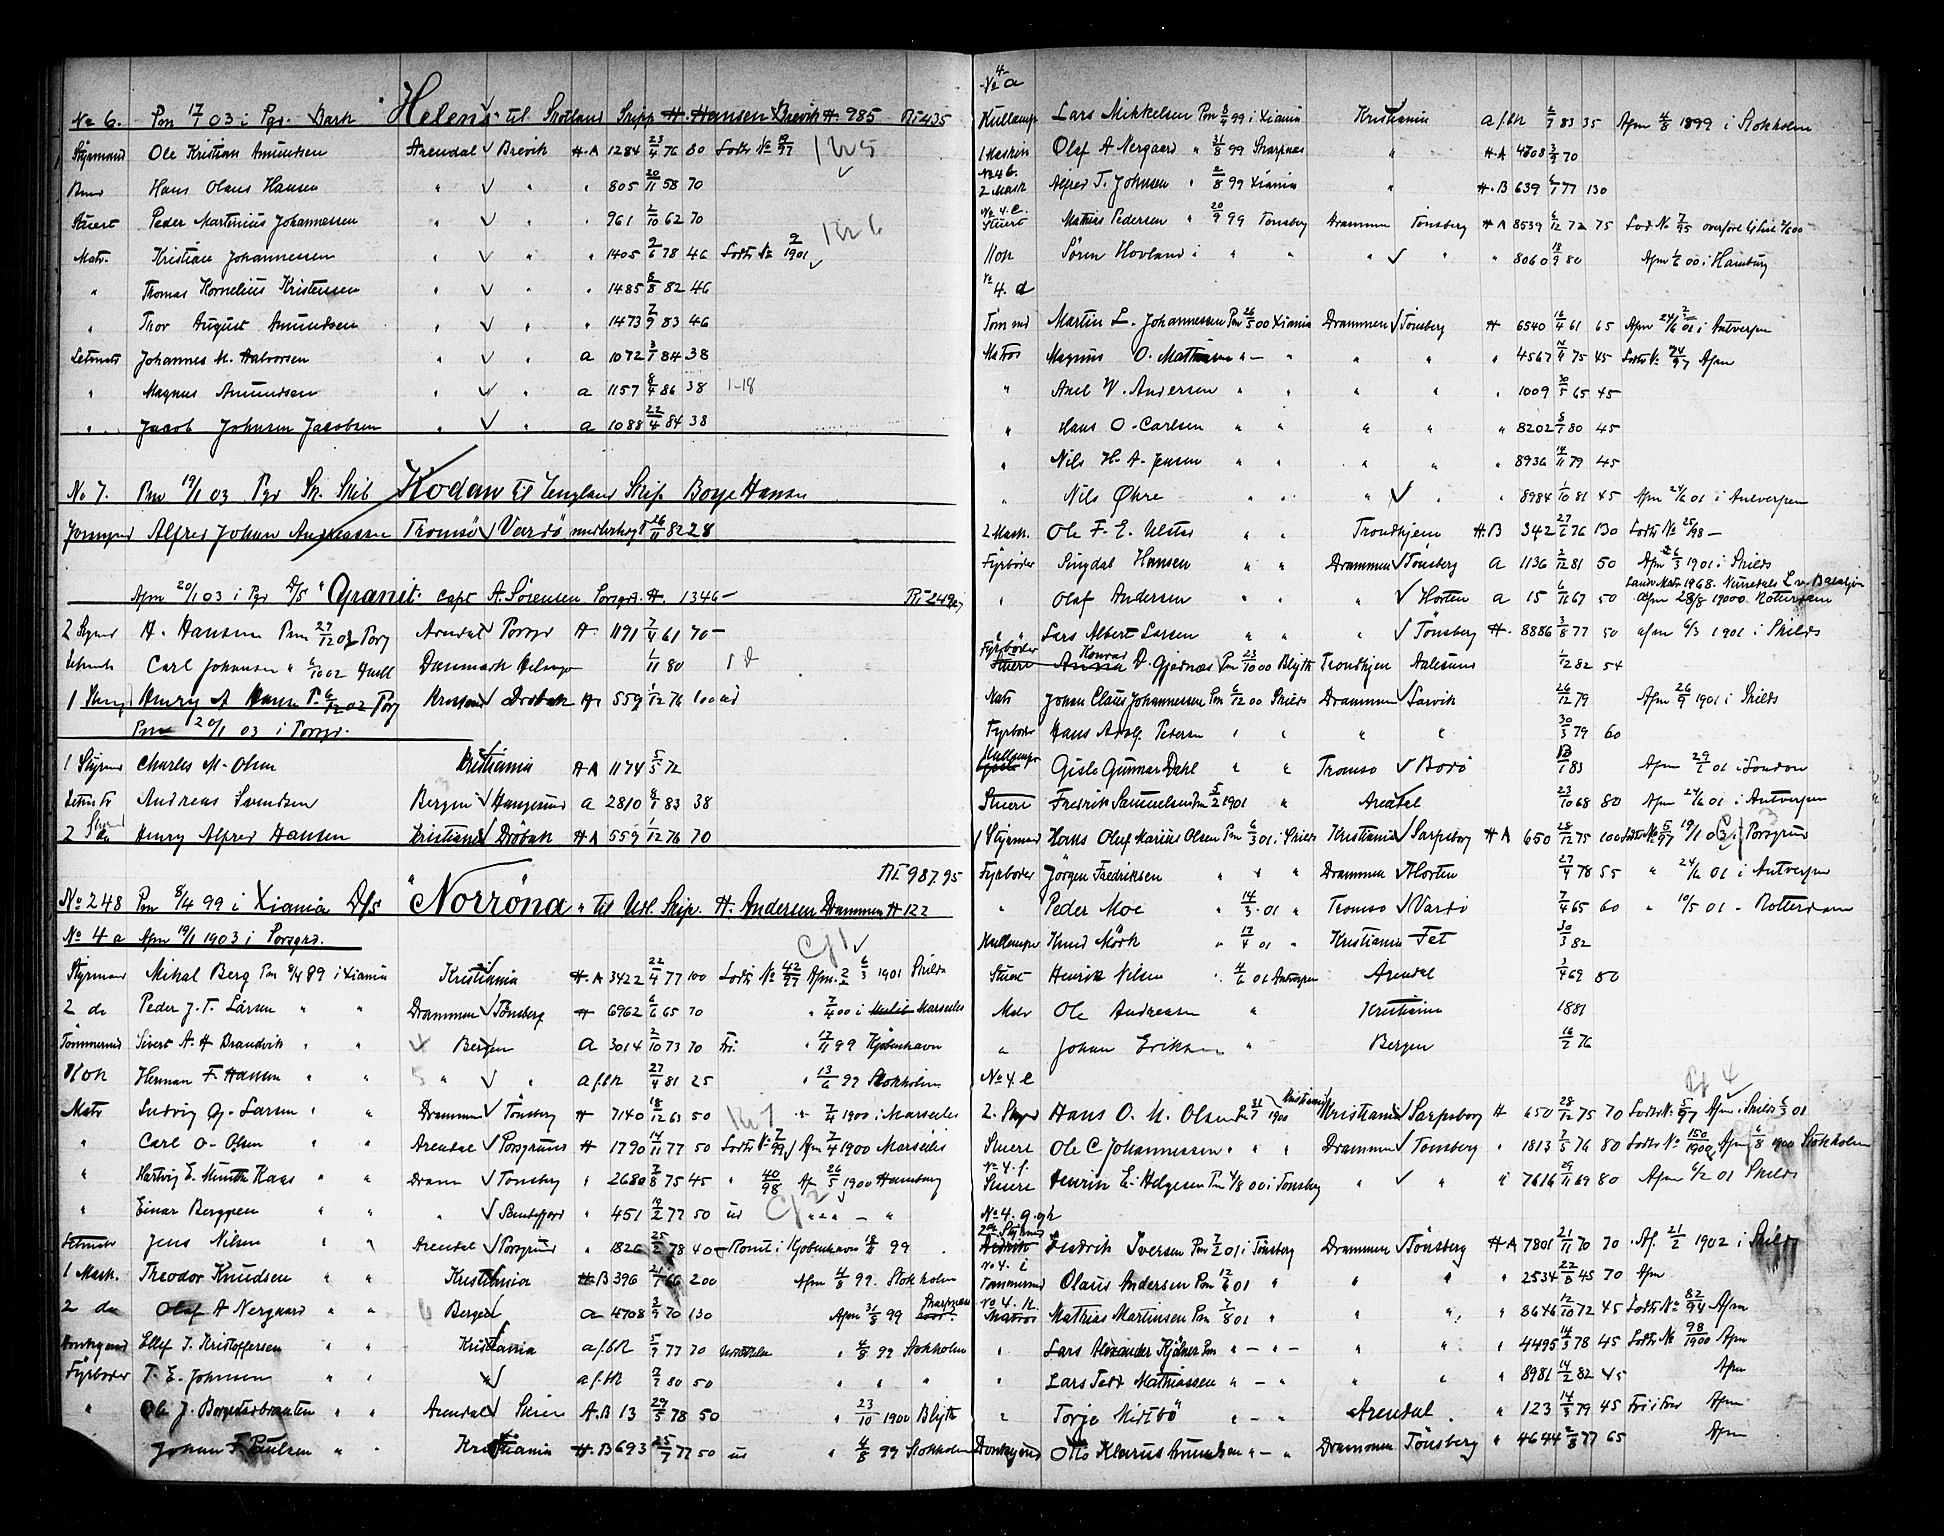 No 6. Pm 17/1 03 i Pgr. Bark "Helens" til Skotland Skipp H. Hansen Brevik H. 985 RI 435
Styrmand Ole Kristian Amundsen Arendal Brevik H.A 1284 23/4 76 80 Lodts No 19/97
Hans Olaus Hansen " " " 805 20/11 58 70
Stuert Peder Martinius Johannessen " " " 961 2/10 62 70
Matr. Kristian Johannessen " " " 1405 9/6 78 46 Lodts No 9/1901
" Thomas Kornelius Kristensen " " " 1485 8/8 82 46
" Thor August Amundsen " " " 1473 7/9 83 46
Letmatr Johannes M. Halvorsen " " a 1072 3/1 84 38
" Magnus Amundsen " " a 1157 8/4 86 38 1-18
" Jacob Johnsen Jacobsen " " a 1088 22/4 84 38
No 7. Pm 19/1 03 Pgr Sk. Skib Kodan til England Skip. Boye Hansen
Jomgmd Alfred Johan Andreassen Tromsö Vardö 26/11 82 28
Afm 20/1 03 i Pgr D/S "Granit" Capt A. Sörensen Porsgr. H. 1346 - RI 249
2 Styrmd H. Hansen Pm 27/12 02 Porg Arendal Porsgr H. 1191 7/4 61 70 -
Letmatr Carl Johansen " 6/10 02 Danmark Helsingør 1/11 80
1 Styrm Henry A Hansen P. 6/12 02 Porg Drøbak H 559 1/12 76 100
Pm 20/1 03 i Porsgr.
1 Styrmd Charles M. Olsen Kristiania H A 1174 5/5 72
Letmtr Andreas Svendsen Bergen Haugesund a 2810 8/1 83 38
2 Styrmd Henry Alfred Hansen Kristiania Dröbak H A 559 1/12 76 70
RI 987.95
No 248 Pm 8/4 99 i Xiania D/S "Norröna" til Udl. Skip. H. Andersen Drammen H 122
No 4 a Afm 19/1 1903 i Porsgrd.
Styrman Mikal Berg Pm 8/4 89 i Xiania Kristiania H.A 3422 22/4 77 100 Lodts No 42/97 Afm. 6/3 1901 Skilds
2 do Peder J. T. Larsen " " Drammen Tönsberg H 6962 6/6 65 70 " 7/4 00 i Marseiles
Tömmermd Sivert A. H Brandvik " " Bergen a 3014 2/10 73 70 Fri. " 17/11 99 Kjöbenhavn
Kok Herman F. Hansen " " " " a f.bk 27/4 81 25 " 13/6 99 Stokholm
Matr Ludvig G. Larsen " " Drammen Tönsberg H 7140 18/12 63 50 " 7/4 1900 i Marseiles
" Carl O. Olsen " " Arendal Porsgrund H 1790 14/11 77 50 Lodts No 7/99 Afm 7/4 1900 Marseiles
" Hartvig E. Munthe Kaas " " Dramm Tönsberg " 2680 7/8 75 45 " 40/98 Af 26/5 1900 Hamburg
" Einar Berggren " " " Sandefjord " 451 19/2 77 50 ud " " " - "
Letmatr Jens Nilsen " " Arendal Porsgrund " 1826 25/2 78 40 Römt i Kjöbenhavn 18/11 99
1 Mask. Theodor Knudsen " " Kristiania H.B 396 21/1 66 200 Afm 4/8 99. Stokholm
2 do Olaf A Nergaard " " Bergen a 4708 3/9 70 130 Afm 31/8 99 Skarpnæs
Donkeymd Ellef T. Kristoffersen " " Kristiania a f.bk 5/9 77 70 " 4/8 99 Stokholm
Fyrböder T. E. Johnsen " " " a f.bk 7/7 80 50 " " "
" Ole J. Borgestadbraaten " " Arendal Skien A.B 13 29/5 78 50 " 23/10 1900 Blyth
Johan F. Paulsen " " Kristiania H.B 693 25/7 77 50 ud " 4/8 99 Stokholm
No 4 a
Kullemp Lars Mikkelsen Pm 8/4 99 i Xiania Kristiania a f.bk 2/7 83 35 Afm 4/8 1899 i Stokholm
1 Maskin Olaf A Nergaard " 31/8 99 Skarpnæs " H.A 4708 3/9 70
No 4 b.
2 Mask Alfred T. Johnsen " 2/8 99 Xiania " H.B 639 6/1 77 130
No 4. C.
Stuert Mathias Pedersen " 20/9 99 Tönsberg Drammen Tönsberg H A 8539 6/12 72 75 Lod No 7/95
Kok Sören Hovland i " " " " " " 8060 18/9 80 Afm 1/6 00 i Hamburg
No 4. d
Tömmd Martin L. Johannessen Pm 26/5 00 Xiania Drammen Tönsberg H 6540 16/4 61 65 Afm 24/6 01 i Antverpen
Matros Magnus O. Mathisen " - " " " " 4567 75 45 Lodts No 74/97 Afm
" Axel W. Andersen " " " " " 1009 30/5 65 45
" Hans O. Carlsen " " " " " 8202 5/1 80 45
" Nils H. A. Jensen " " " " " 8936 14/11 79 45
" Nils Øhre " " " " 8984 1/10 81 45 Afm 24/6 01 i Antverpen
2 Mask. Ole F. E. Ulstad " " Trondhjem H.B 342 27/6 76 130 Lodts No 25/98 -
Fyrböder Singdal Hansen " " Drammen Tönsberg a 1136 2/12 81 50 Afm 6/3 1901 i Skilds
" Olaf Andersen " " " Horten a 15 6/11 67 50 Afm 28/8 1900 Rotterdam
" Lars Albert Larsen " " " Tönsberg H. 8886 3/8 77 50 afm 6/3 1901 i Skilds
Fyrböder Konrad D. Gjednæs Pm 23/10 00 Blyth Trondhjem Aalesund 1/12 82 54
Matr Johan Claus Johannessen Pm 6/12 00 Skilds Drammen Larvik 26/12 79 Afm 26/9 1901 i Skilds
Fyrböder Hans Adolf Petersen " " " " 30/3 79 60
Kullempr Gisle Gunnar Dahl " " Tromsö Bodö 13/1 83 Afm 29/1 01 i London
Stuert Fredrik Samuelsen Pm 5/2 1901 " Arendal 23/10 68 80 Afm 24/6 01 i Antverpen
1 Styrmand Hans Oluf Marius Olsen Pm 6/3 01 i Skilds Kristiania Sarpsborg H A 650 28/12 75 100 Lodts No 5/97 19/1 03 i Porsgrund
Fyrböder Jörgen Fredriksen " " " Drammen Horten 27/4 78 55 " 24/6 01 i Antverpen
" Peder Moe " 14/3 01 " Tromsö Vardö 7/4 65 60 " 10/5 01 - Rotterdam
Kullemper Knud Mörk " 17/4 01 " Kristiania Fet 30/3 82
Stuert Henrik Nilsen " 4/6 01 Antverpen Arendal 3/4 69 80
Matr Ole Andreasen " Kristiania 1881
" Johan Eriksen " Bergen 16/2 76
No 4 e
2. Styrmd Hans O. M. Olsen Pm 31/7 1900 Kristiania Kristiania Sarpsborg H 650 28/12 75 70 Lodts No 5/97 Afm i Skilds 6/3 01
Stuert Ole C Johannessen " " " Drammen Tönsberg " 1813 7/5 76 80 Lodts No 150/1900 Afm 6/8 1900 Stokholm
No 4. f.
Stuert Henrik E. Helgesen Pm 4/8 00 i Tönsberg " " " 7616 29/11 69 80 Afm 6/2 01 Skilds
No 4. g. gh
2den Styrmd Fredrik Iversen Pm 7/2 01 i Tönsberg Drammen Tönsberg H A 7801 21/11 70 70 Af. 21/2 1902 i Skilds
No 4. i
Tömmermd Olaus Andersen Pm 12/6 01 " " " " 2534 22/8 45 70 Afm
No 4. k.
Matros Mathias Martinsen Pm 7/8 01 " " " " 8646 12/10 72 45 Lodts No 82/94 Afm
" Lars Alexander Kjölner Pm " - " - " " " 4495 14/3 78 45 Lodts No 98/1900 Afm
" Lars Tedd Mathiassen " - " " " " 8981 14/2 82 45 Afm
" Torje Mistbö " - " Arendal " 123 14/3 79 45 Afm
Donkeymd Otto Klarus Amundsen " - " Drammen Tönsberg " 4644 2/8 77 65 Afm